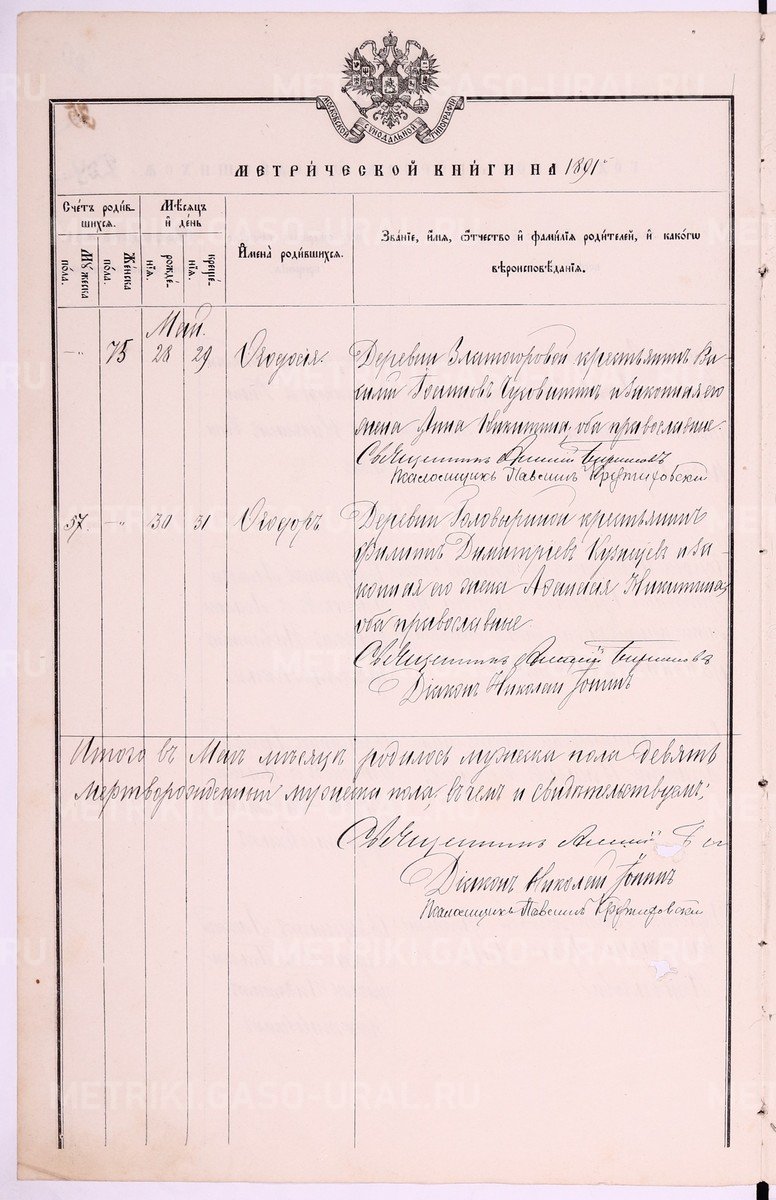 МОСКОВСКОЙ СѴНОДАЛЬНОЙ ТИПОГРАФІИ
МЕТРИ́ЧЕСКОЙ КНИ́ГИ НА 1891 г
Сче́тъ роди́в-
шихся.
Мѣ́сяцъ
и҆ де́нь
И҆мена̀ роди́вшихся.
Зва́ніе, и҆́мя, ѻ҆́тчество и҆ фами́лія роди́телей, и҆ како́гѡ
вѣроисповѣ́данія.
Мꙋ́жеска по́ла.
Же́нска по́ла.
рожде́-нія.
креще́-нія.
Май.
-"- 75 28 29 Ѳеодосія. Деревни Златогоровой крестьянинъ Ва-
силій Іоанновъ и законная его
жена Анна Никитина, оба православные.
Священникъ Алексій Бирюковъ
Псаломщикъ
57. -"- 30 31 Ѳеодоръ Деревни Головыриной крестьянинъ
Филиппъ Димитріевъ и за-
конная его жена Аѳанасія Никитина,
оба православные.
Священникъ Алексій Бирюковъ
Діаконъ Николай Іонинъ
Итого въ Маѣ мѣсяцѣ родилось мужеска пола девять
мертворожденный мужеска пола, въ чемъ и свидѣтельствуемъ:
Священникъ Алексій
Діаконъ Николай Іонинъ
Псаломщикъ
METRIKI.GASO-URAL.RU